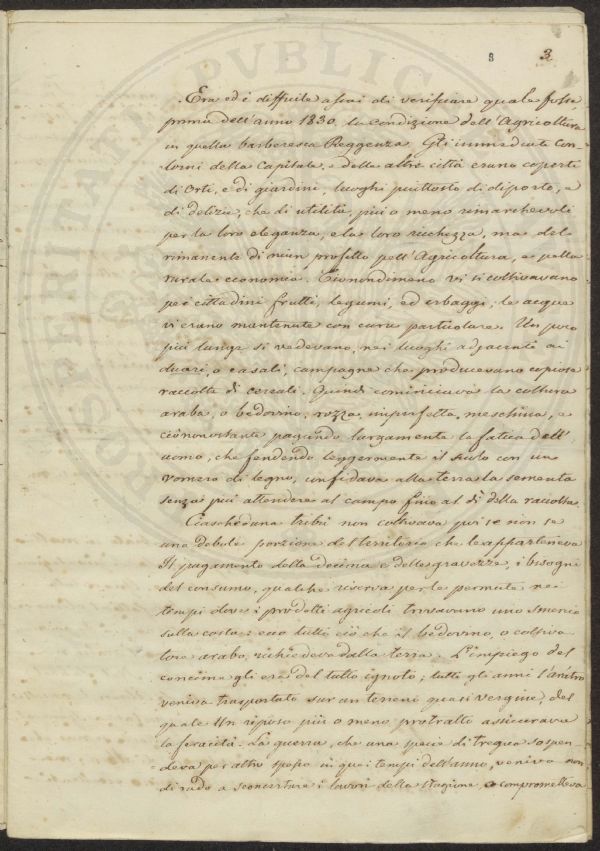 8 3
Era ed è difficile assai di verificare quale fosse
prima dell'anno 1830. la condizione dell'Agricoltura
in quella barbaresca Reggenza. Gli immediati con-
torni della Capitale, e delle altre città erano coperti
di Orti, e di giardini, luoghi piuttosto di diporto, e
di delizie, che di utilità, più o meno rimarchevoli
per la loro eleganza, e la loro ricchezza, ma del
rimanente di niun profitto pell'Agricoltura, e pella
rurale economia. Ciònondimeno vi si coltivavano
pe' cittadini frutti, legumi, ed erbaggi; le acque
vi erano mantenute con cura particolare. Un poco
più lungi si vedevano, nei luoghi adjacenti ai
duari, o casali, campagne che producevano copiose
raccolte di cereali. Quindi cominciava la coltura
araba, o bedovina, rozza, imperfetta, meschina, e
ciònonostante pagando largamente la fatica dell'
uomo, che fendendo leggermente il suolo con un
vomero di legno, confidava alla terra la sementa
senza più attendere al campo fino al dì della raccolta.
Ciascheduna tribù non coltivava poi se non se
una debole porzione del territorio che le apparteneva
Il pagamento della decima e delle gravezze, i bisogni
del consumo, qualche riserva per le permute nei
tempi dove i prodotti agricoli trovavano uno smercio
sulla costa: ecco tutto ciò che il bedovino, o coltiva-
tore arabo, richiedeva dalla terra. L'impiego del
concime gli era del tutto ignoto; tutti gli anni l'aratro
veniva trasportato sur un terreno quasi vergine, del
quale un riposo più o meno protratto assicurava
la feracità. La guerra, che una specie di tregua sospen-
deva per altro spesso in quei tempi dell'anno, veniva non
di rado a sconcertare i lavori della stagione, e comprometteva
PROSPERITATI PVBLICAE